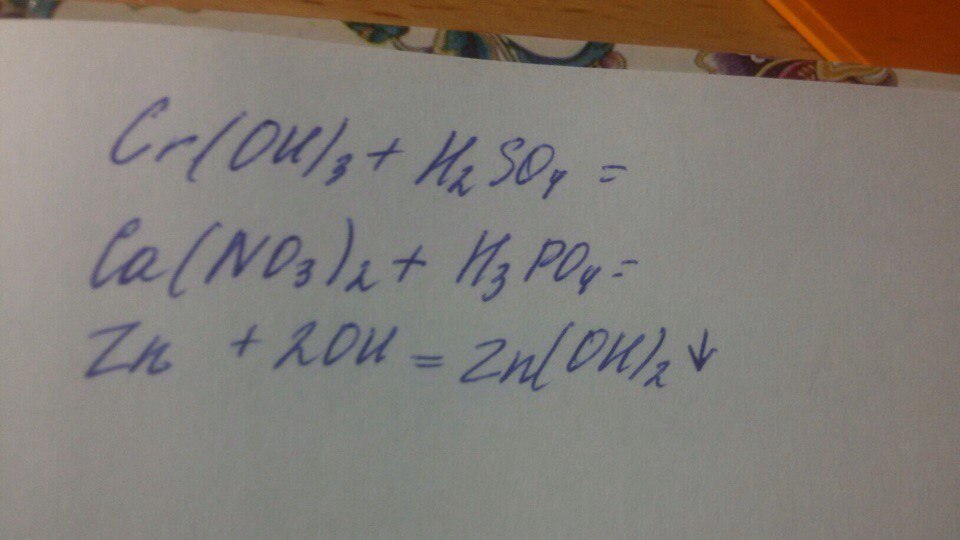 Cr(OH)₃ + H₂SO₄ =
Ca(NO₃)₂ + H₃PO₄ =
Zn + 2OH = Zn(OH)₂ ↓